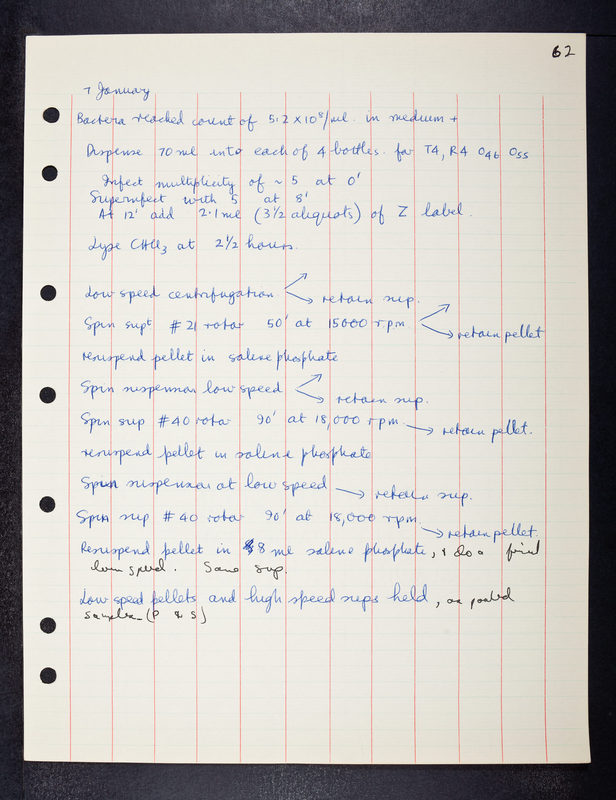 62
7 January
Bactera reached count of 5.2 x 10⁸/ml. in medium +
Dispense 70 ml into each of 4 bottles. for T4, R4 O46 O55
Infect multiplicity of ~ 5 at 0'
Superinfect with 5 at 8'
At 12' add 2.1 ml (3½ aliquots) of Z label.
Lyse CHCl₃ at 2½ hours.
Low speed centrifugation → retain sup.
Spin supt #21 rotor 50' at 15000 rpm → retain pellet
resuspend pellet in saline phosphate
Spin suspension low speed → retain sup.
Spin sup #40 rotor 90' at 18,000 rpm → retain pellet.
resuspend pellet in saline phosphate
Spin suspension at low speed → retain sup.
Spin sup #40 rotor 90' at 18,000 rpm → retain pellet.
Resuspend pellet in 8 ml saline phosphate, & do a final
low speed. Save sup.
Low speed pellets and high speed sups held, as pooled
samples (P & S)